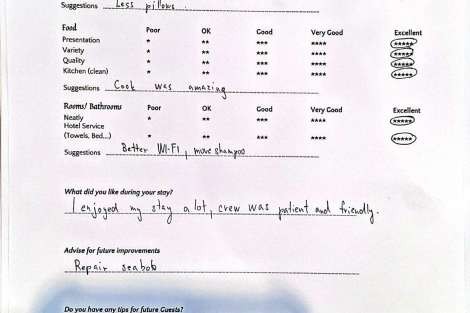 Suggestions Less pillows.
Food Poor OK Good Very Good Excellent
Presentation * ** *** **** *****
Variety * ** *** **** *****
Quality * ** *** **** *****
Kitchen (clean) * ** *** **** *****
Suggestions Cook was amazing
Rooms/ Bathrooms Poor OK Good Very Good Excellent
Neatly * ** *** **** *****
Hotel Service
(Towels, Bed...) * ** *** **** *****
Suggestions Better WI-FI, more shampoo
What did you like during your stay?
I enjoyed my stay a lot, crew was patient and friendly.
Advise for future improvements
Repair seabob
Do you have any tips for future Guests?